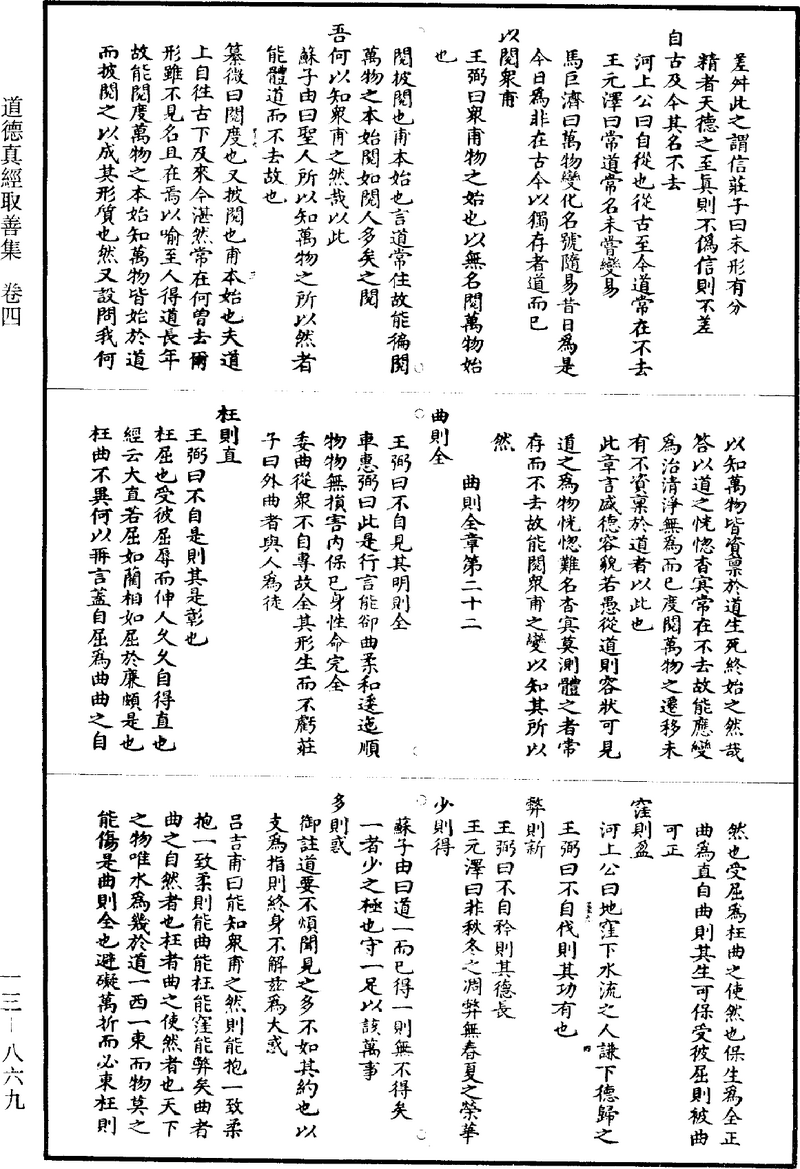 道德真經取善集　卷四
差舛此之謂信莊子曰未形有分
精者天德之至真則不偽信則不差
自古及今其名不去
河上公曰自從也從古至今道常在不去
王元澤曰常道常名未嘗變易
馬巨濟曰萬物變化名號隨易昔日為是
今日為非在古今以獨存者道而已
以閱衆甫
王弼曰衆甫物之始也以無名閱萬物始
也
閱披閱也甫本始也言道常住故能徧閱
萬物之本始閱如閱人多矣之閱
吾何以知衆甫之然哉以此
蘇子由曰聖人所以知萬物之所以然者
能體道而不去故也
纂微曰閱度也又披閱也甫本始也夫道
上自往古下及來今湛然常在何曾去爾
形雖不見名且在焉以喻至人得道長年
故能閱度萬物之本始知萬物皆始於道
而披閱之以成其形質也然又設問我何
以知萬物皆資稟於道生死終始之然哉
答以道之恍惚杳冥常在不去故能應變
為治清淨無為而已度閱萬物之遷移未
有不資稟於道者以此也
此章言盛德容貌若愚從道則容狀可見
道之為物恍惚難名杳冥莫測體之者常
存而不去故能閱衆甫之變以知其所以
然
曲則全章第二十二
曲則全
王弼曰不自見其明則全
車惠弼曰此是行言能卻曲柔和逶迤順
物物無損害內保已身性命完全
委曲從衆不自專故全其形生而不虧莊
子曰外曲者與人為徒
枉則直
王弼曰不自是則其是彰也
枉屈也受彼屈辱而伸人久久自得直也
經云大直若屈如藺相如屈於廉頗是也
枉曲不異何以再言蓋自屈為曲曲之自
然也受屈為枉曲之使然也保生為全正
曲為直自曲則其生可保受彼屈則被曲
可正
窪則盈
河上公曰地窪下水流之人謙下德歸之
王弼曰不自伐則其功有也
弊則新
王弼曰不自矜則其德長
王元澤曰非秋冬之凋弊無春夏之榮華
少則得
蘇子由曰道一而已得一則無不得矣
一者少之極也守一足以該萬事
多則惑
御註道要不煩聞見之多不如其約也以
支為指則終身不解茲為大惑
呂吉甫曰能知衆甫之然則能抱一致柔
抱一致柔則能曲能枉能窪能弊矣曲者
曲之自然者也枉者曲之使然者也天下
之物唯水為幾於道一西一東而物莫之
能傷是曲則全也避礙萬折而必東枉則
一三—八六九